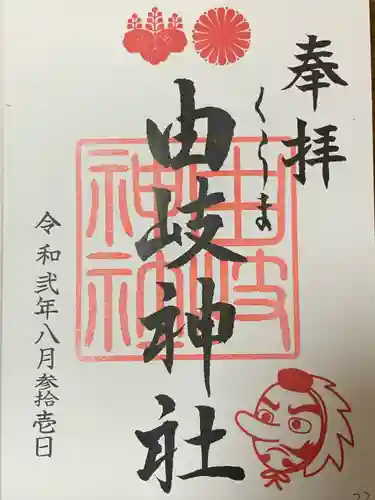 奉拝
くらま
由岐神社
由岐
神社
令和弐年八月参拾壱日